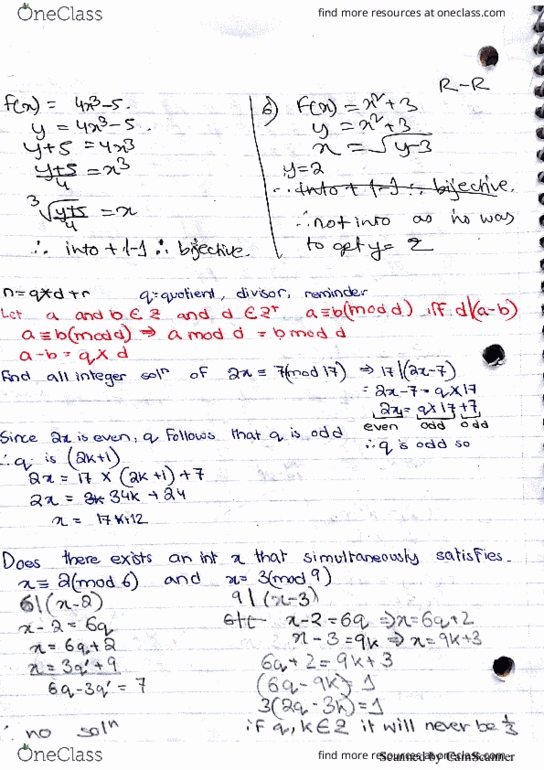 OneClass
find more resources at oneclass.com
R-R
f(x) = 4x³-5.
y = 4x³-5.
y+5 = 4x³
y+5/4 = x³
³√y+5/4 = x
∴ into + 1-1 ∴ bijective.
b) F(x) = x²+3
y = x²+3
x = √y-3
y=2
∴ into + 1-1 ∴ bijective.
∴ not into as no was
to get y= 2
n=q×d+r q=quotient, divisor, reminder
Let a and b ∈ Z and d ∈ Z⁺ a≡b(mod d) iff d|(a-b)
a≡b(mod d) ⇒ a mod d = b mod d
a-b = q × d
find all integer solⁿ of 2x ≡ 7(mod 17) ⇒ 17|(2x-7)
= 2x-7 = q×17
2x = q×17+7
even odd odd
Since 2x is even, q follows that q is odd ∴ q is odd so
∴ q is (2k+1)
2x = 17 × (2k+1) + 7
2x = 34k + 24
x = 17k+12
Does there exists an int x that simultaneously satisfies.
x ≡ 2(mod 6) and x= 3(mod 9)
6|(x-2)
x-2 = 6q
x = 6q+2
x = 3q'+9
6q-3q' = 7
∴ no solⁿ
9|(x-3)
x-2 =6q ⇒ x=6q+2
x-3 =9k ⇒ x=9k+3
6q+2 = 9k+3
(6q-9k)=1
3(2q-3k)=1
if q,k∈Z it will never be 1/3
OneClass
find more resources at oneclass.com
Scanned by CamScanner